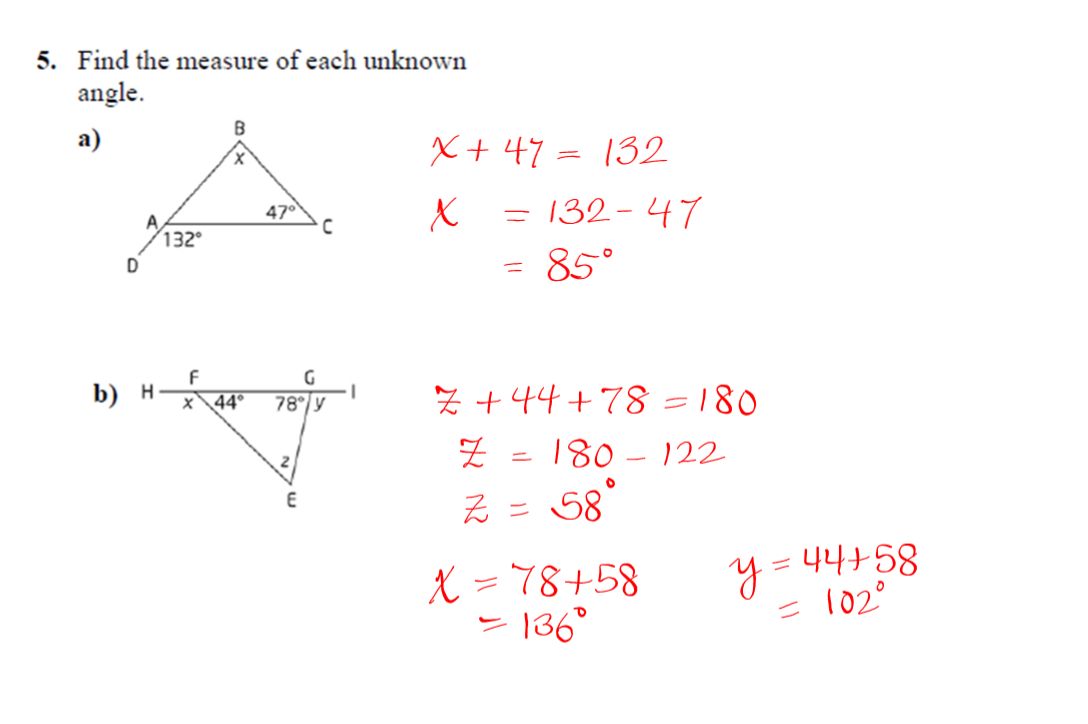 5. Find the measure of each unknown
angle.
a)
B
x
47°
A
C
132°
D
x + 47 = 132
x = 132 - 47
= 85°
b)
H
F
G
I
x
44°
78°
y
z
E
z + 44 + 78 = 180
z = 180 - 122
z = 58°
x = 78+58
= 136°
y = 44+58
= 102°